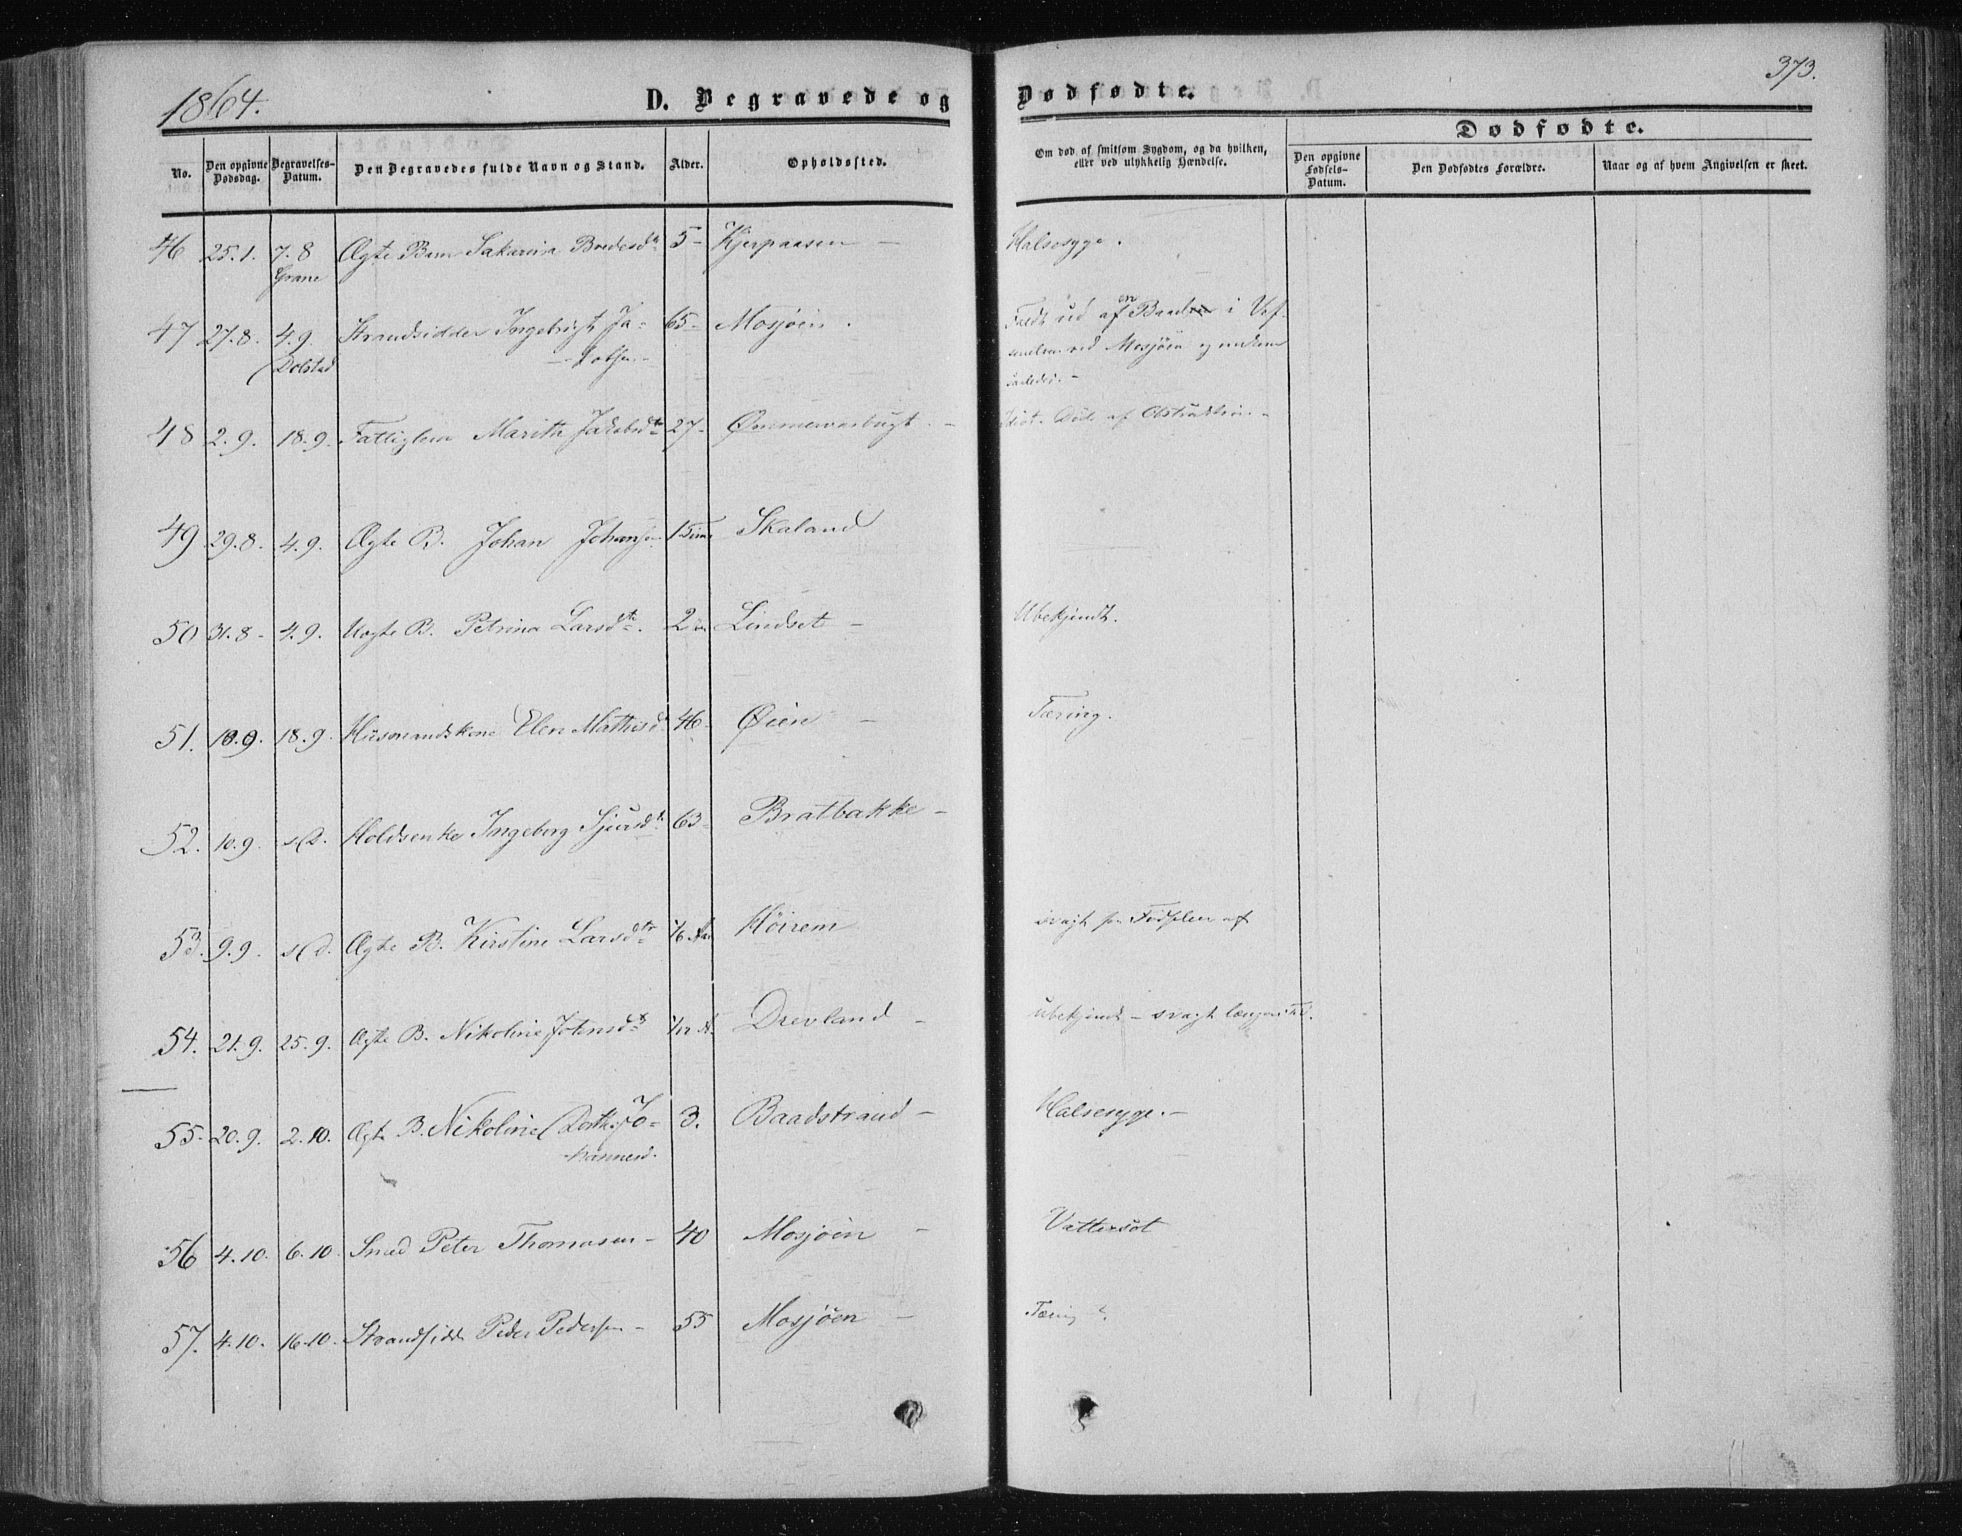 1864.
D. Begravede og Dødfødte.
373.
No.
Den opgivne Dødsdag.
Begravelses-Datum.
Den Begravedes fulde Navn og Stand.
Alder.
Opholdssted.
Om død af smitsom Sygdom, og da hvilken, eller ved ulykkelig Hændelse.
Dødfødte.
Den opgivne Fødsels-Datum.
Den Dødfødtes Forældre.
Naar og af hvem Angivelsen er skeet.
46 25.1. 7.8 Ægte Barn Sakarina 5- Halsesyge.
Grane
47 27.8. 4.9. Strandsidder Ingebrigt Ja- 65- Mosjøen. Faldt ud af en i Vef-
Dolstad kobsen- ved Mosjøen og
48 2.9. 18.9. Fattiglem Marith Jakobsdtr 27- Idiot. Døde af Obstruktion-
49 29.8. 4.9. Ægte B. Johan Johansen Skaland
50 31.8- 4.9. Uægte B. Petrina Larsdtr. 2 Lindset - Ubekjendt.
51. 10.9. 18.9. Husmandskone Elen Mathisd 46- Øien - Tæring.
52. 10.9. s.D. Ingeborg Sjursdtr 63- Bratbakke -
53. 9.9. s.d. Ægte B. Kirstine Larsdtr Høirem svagt fra Fødselen af
54. 21.9. 25.9. Ægte B. Nikoline Drevland - ubekjendt - svagt
55- 20.9. 2.10. Ægte B. Nikoline Dorth. Jo- 3. Baadstrand - Halsesyge. -
hannesd.
56 4.10. 6.10. Smed Peter Thomasen - 40 Mosjøen - Vattersot
57. 4.10. 16.10. Strandsidd Peder Pedersen - 55 Mosjøen - Tæring